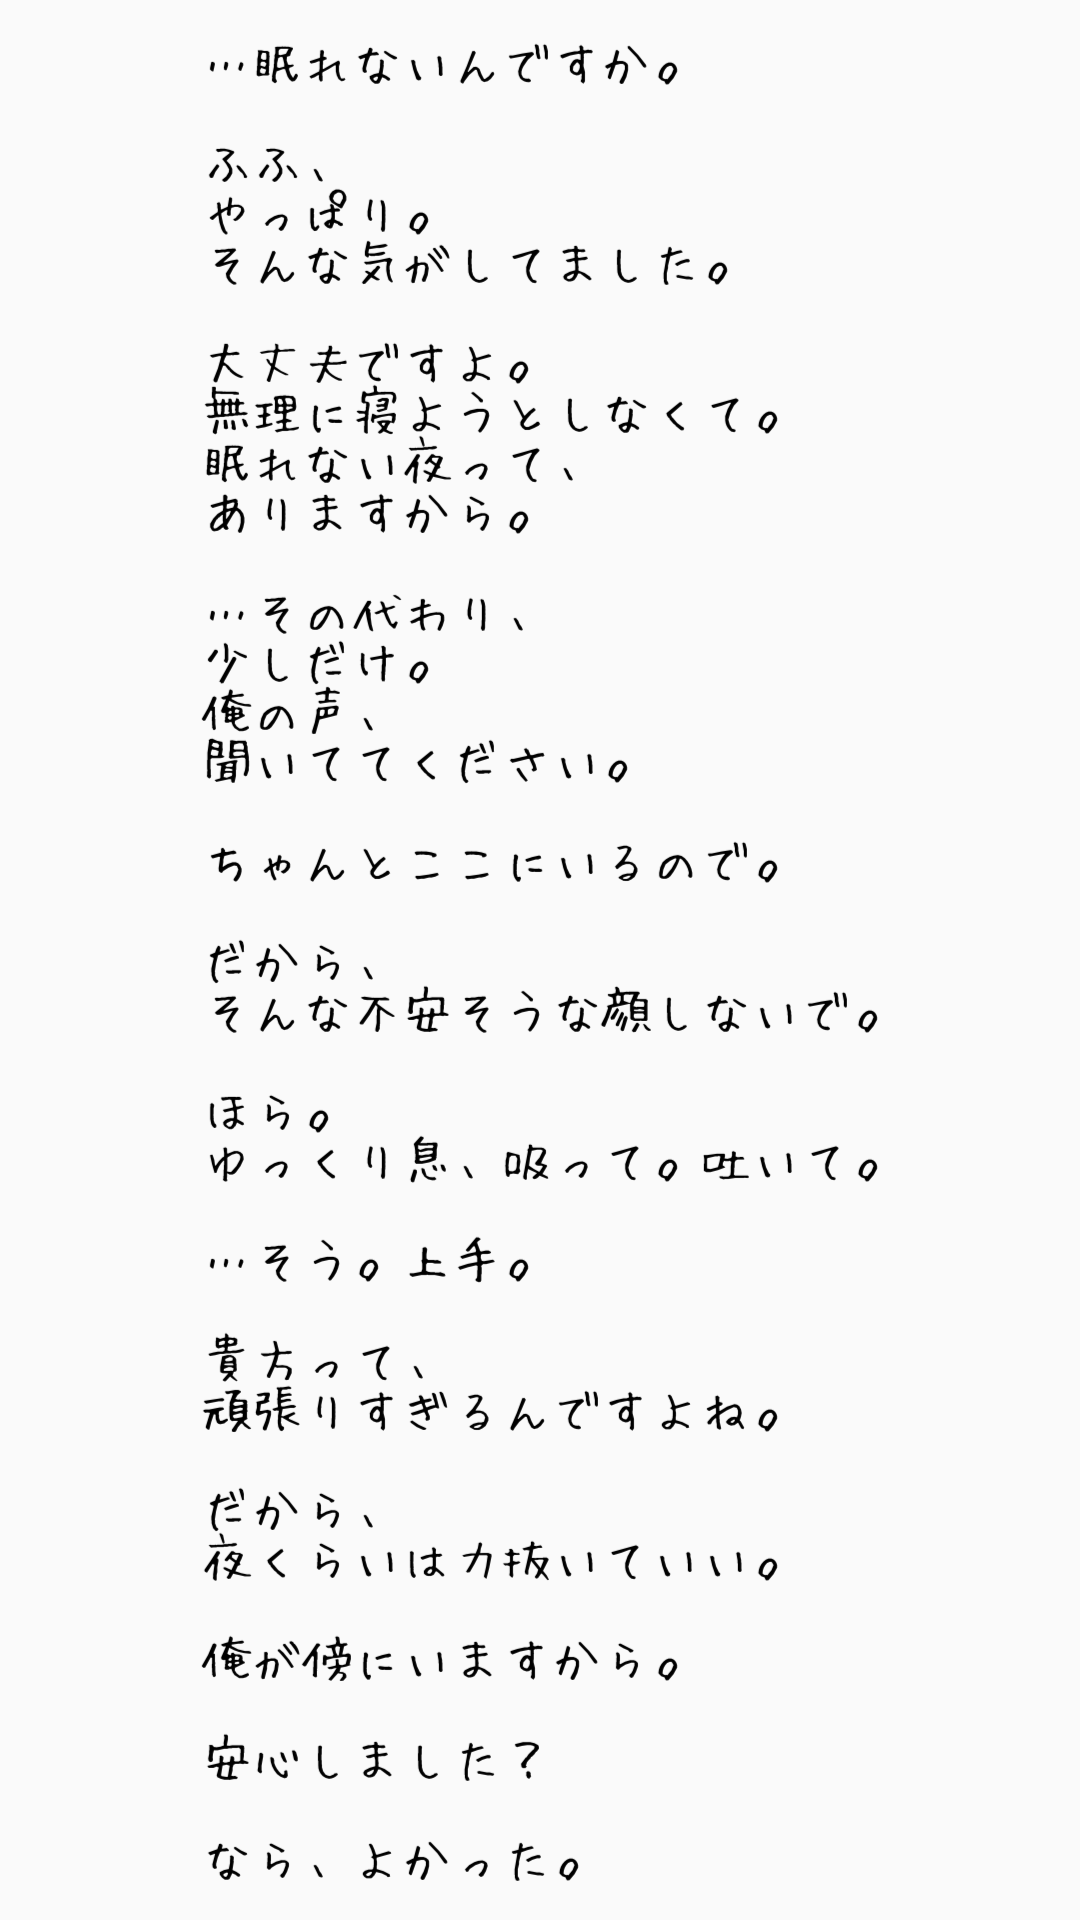 …眠れないんですか。
ふふ、
やっぱり。
そんな気がしてました。
大丈夫ですよ。
無理に寝ようとしなくて。
眠れない夜って、
ありますから。
…その代わり、
少しだけ。
俺の声、
聞いててください。
ちゃんとここにいるので。
だから、
そんな不安そうな顔しないで。
ほら。
ゆっくり息、吸って。吐いて。
…そう。上手。
貴方って、
頑張りすぎるんですよね。
だから、
夜くらいは力抜いていい。
俺が傍にいますから。
安心しました？
なら、よかった。